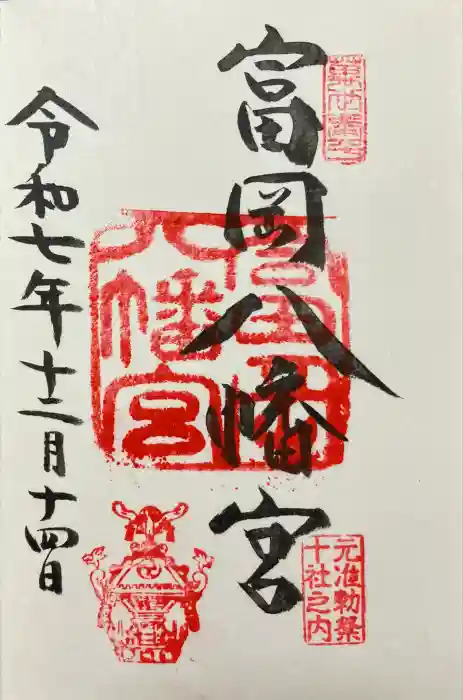 富岡八幡宮
富岡八幡宮
元准勅祭
十社之内
令和七年十二月十四日